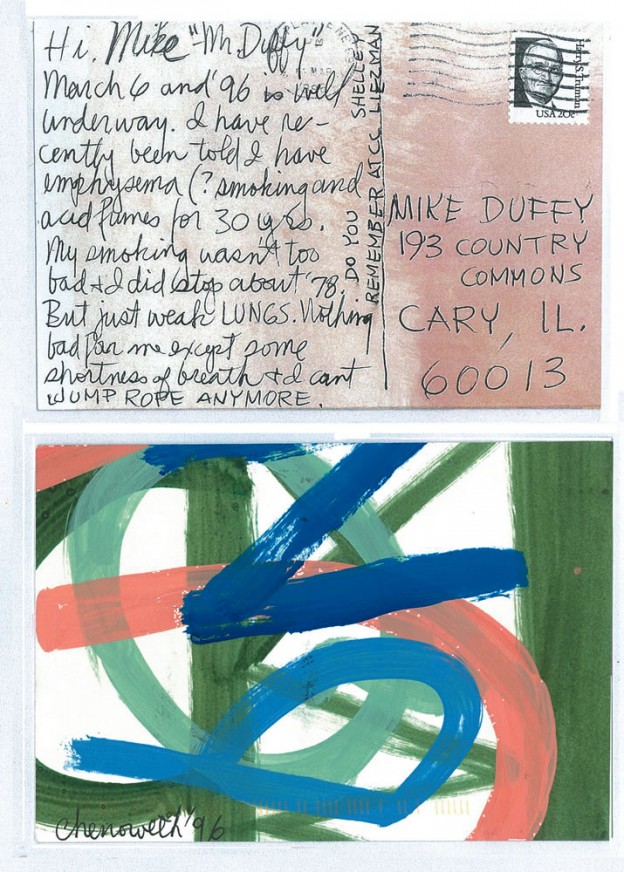 Hi, Mike "Mr. Duffy"
March 6 and '96 is well
underway. I have re-
cently been told I have
emphysema (? smoking and
acid fumes for 30 yrs.
My smoking wasn't too
bad & I did stop about '78.
But just weak LUNGS. Nothing
bad for me except some
shortness of breath & I cant
JUMP ROPE ANYMORE.
DO YOU SHELLEY
REMEMBER ATCC LIEZMAN
Harry S. Truman
USA 20c
MIKE DUFFY
193 COUNTRY
COMMONS
CARY, IL.
60013
chenoweth '96